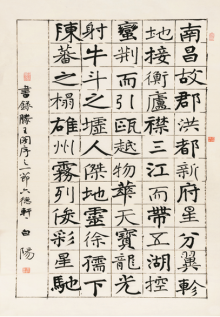 南昌故郡洪都新府星分翼軫
地接衡廬襟三江而帶五湖控
蠻荊而引甌越物華天寶龍光
射牛斗之墟人傑地靈徐孺下
陳蕃之榻雄州霧列俊彩星馳
書録滕王阁序之一節六德軒白陽